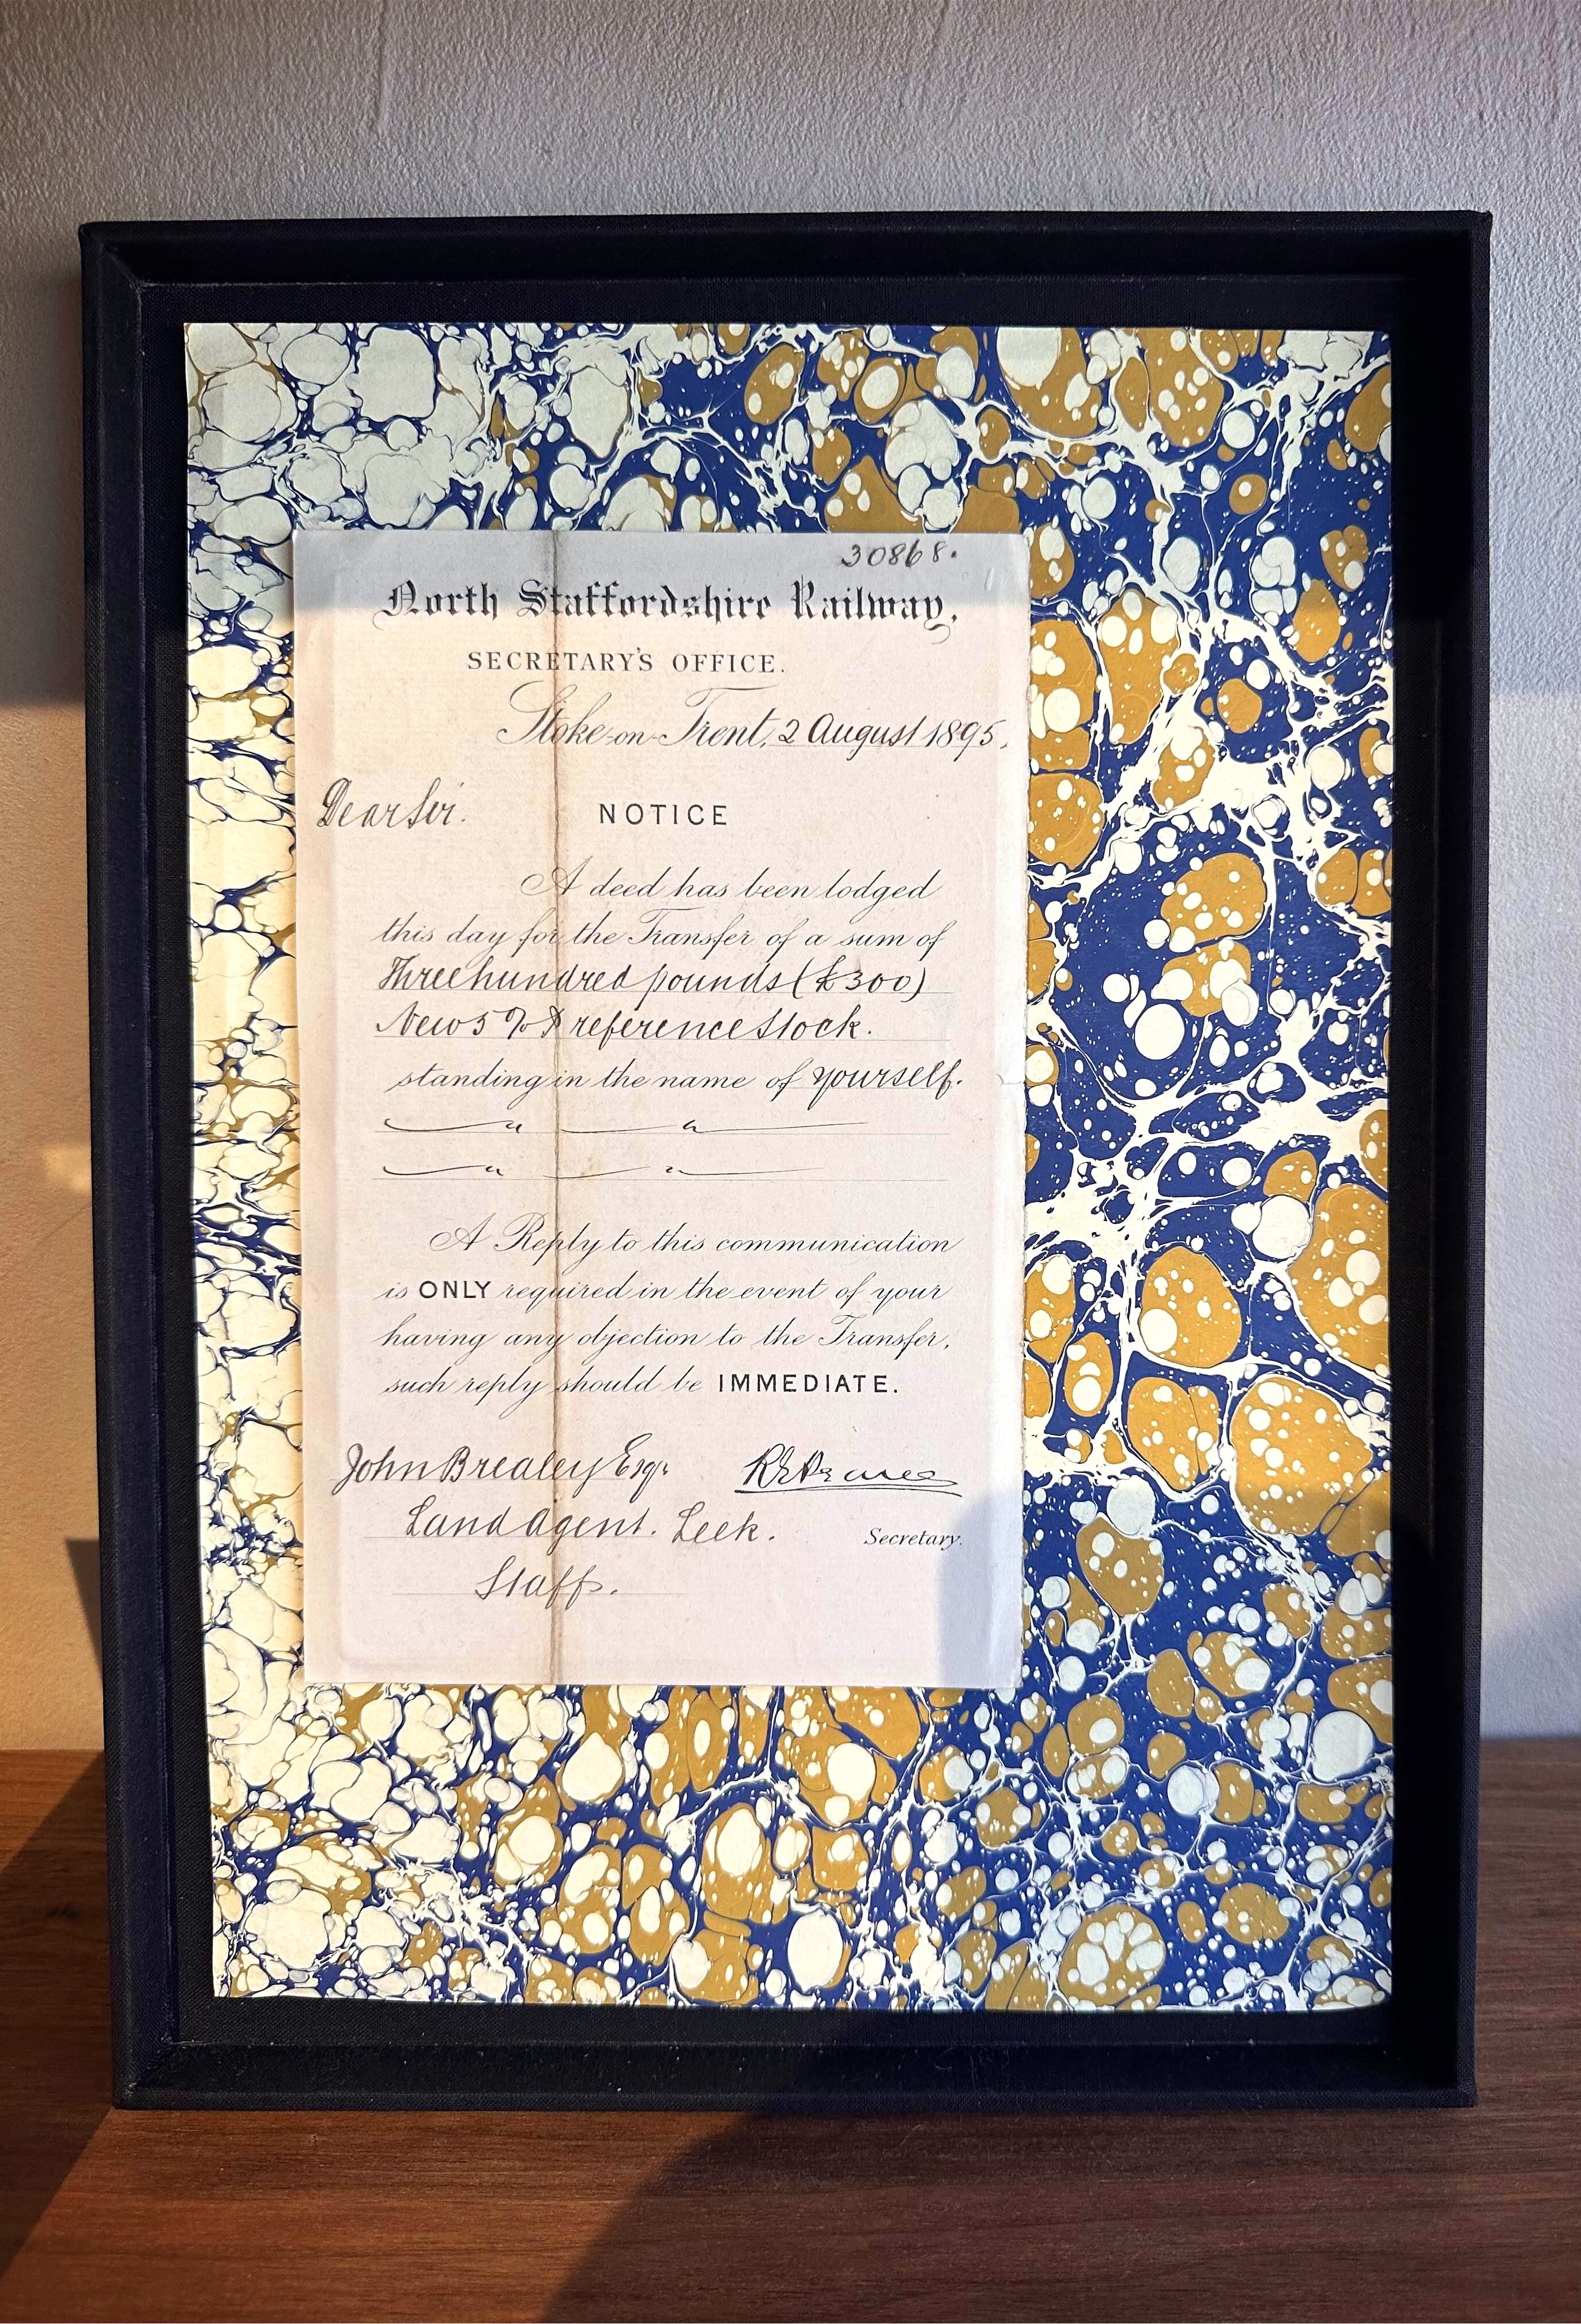 30868.
North Staffordshire Railway,
SECRETARY'S OFFICE.
Stoke-on-Trent, 2 August 1895.
Dear Sir.
NOTICE
A deed has been lodged
this day for the Transfer of a sum of
Three hundred pounds (£300)
New 5 % Preference Stock.
standing in the name of yourself.
A Reply to this communication
is ONLY required in the event of your
having any objection to the Transfer,
such reply should be IMMEDIATE.
John Brealey Esqr
Land Agent. Leek.
Secretary.
Staffs.